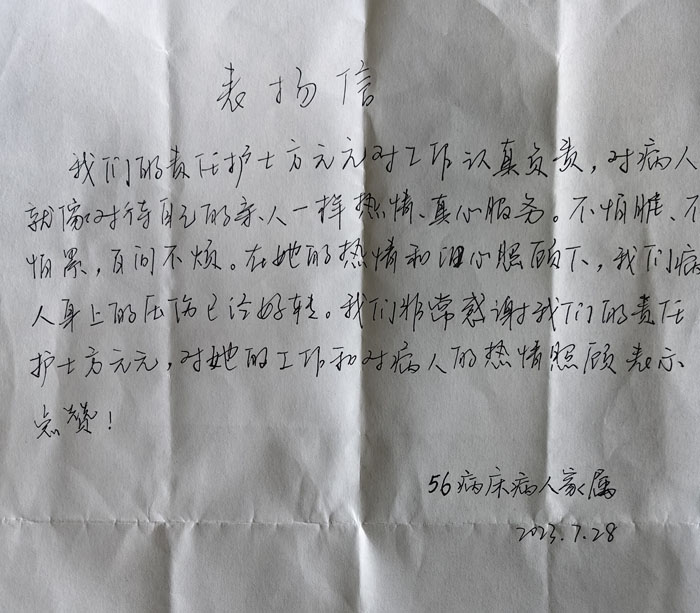 表扬信
我们的责任护士方元元对工作认真负责，对病人
就像对待自己的亲人一样热情、真心服务。不怕脏、不
怕累，百问不烦。在她的热情和细心照顾下，我们病
人身上的压伤已经好转。我们非常感谢我们的责任
护士方元元，对她的工作和对病人的热情照顾表示
点赞！
56病床病人家属
2023.7.28